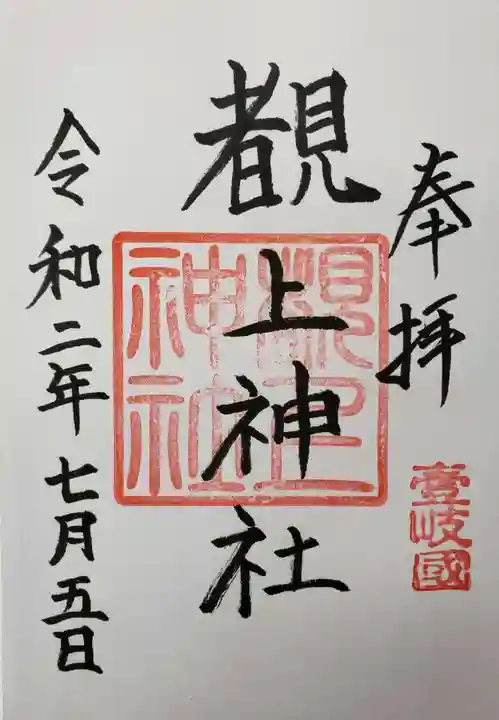 奉拝
壹岐國
覩上神社
令和二年七月五日